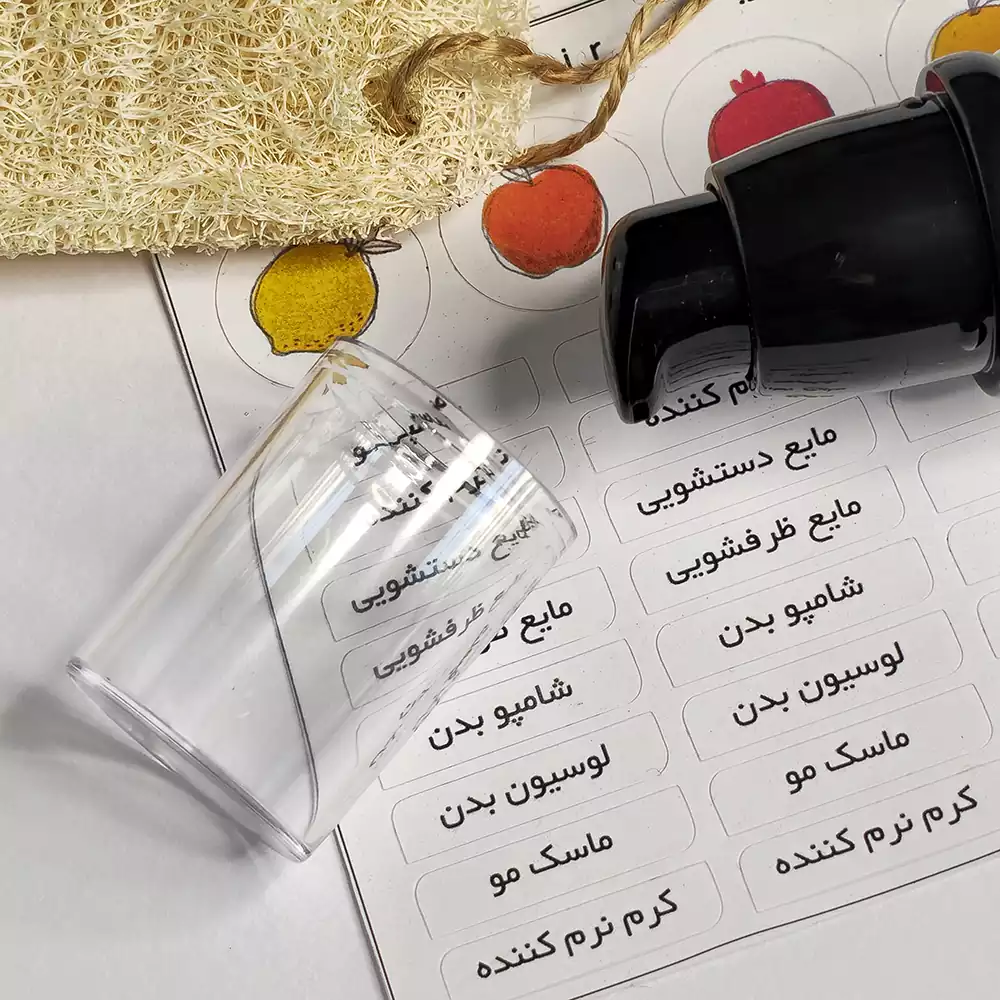 ir
م کننده
مایع دستشویی
مایع ظرفشویی
شامپو بدن
لوسیون بدن
ماسک مو
کرم نرم کننده
مایع دستشویی
ظرفشویی
مایع
شامپو بدن
لوسیون بدن
ماسک مو
کرم نرم کننده